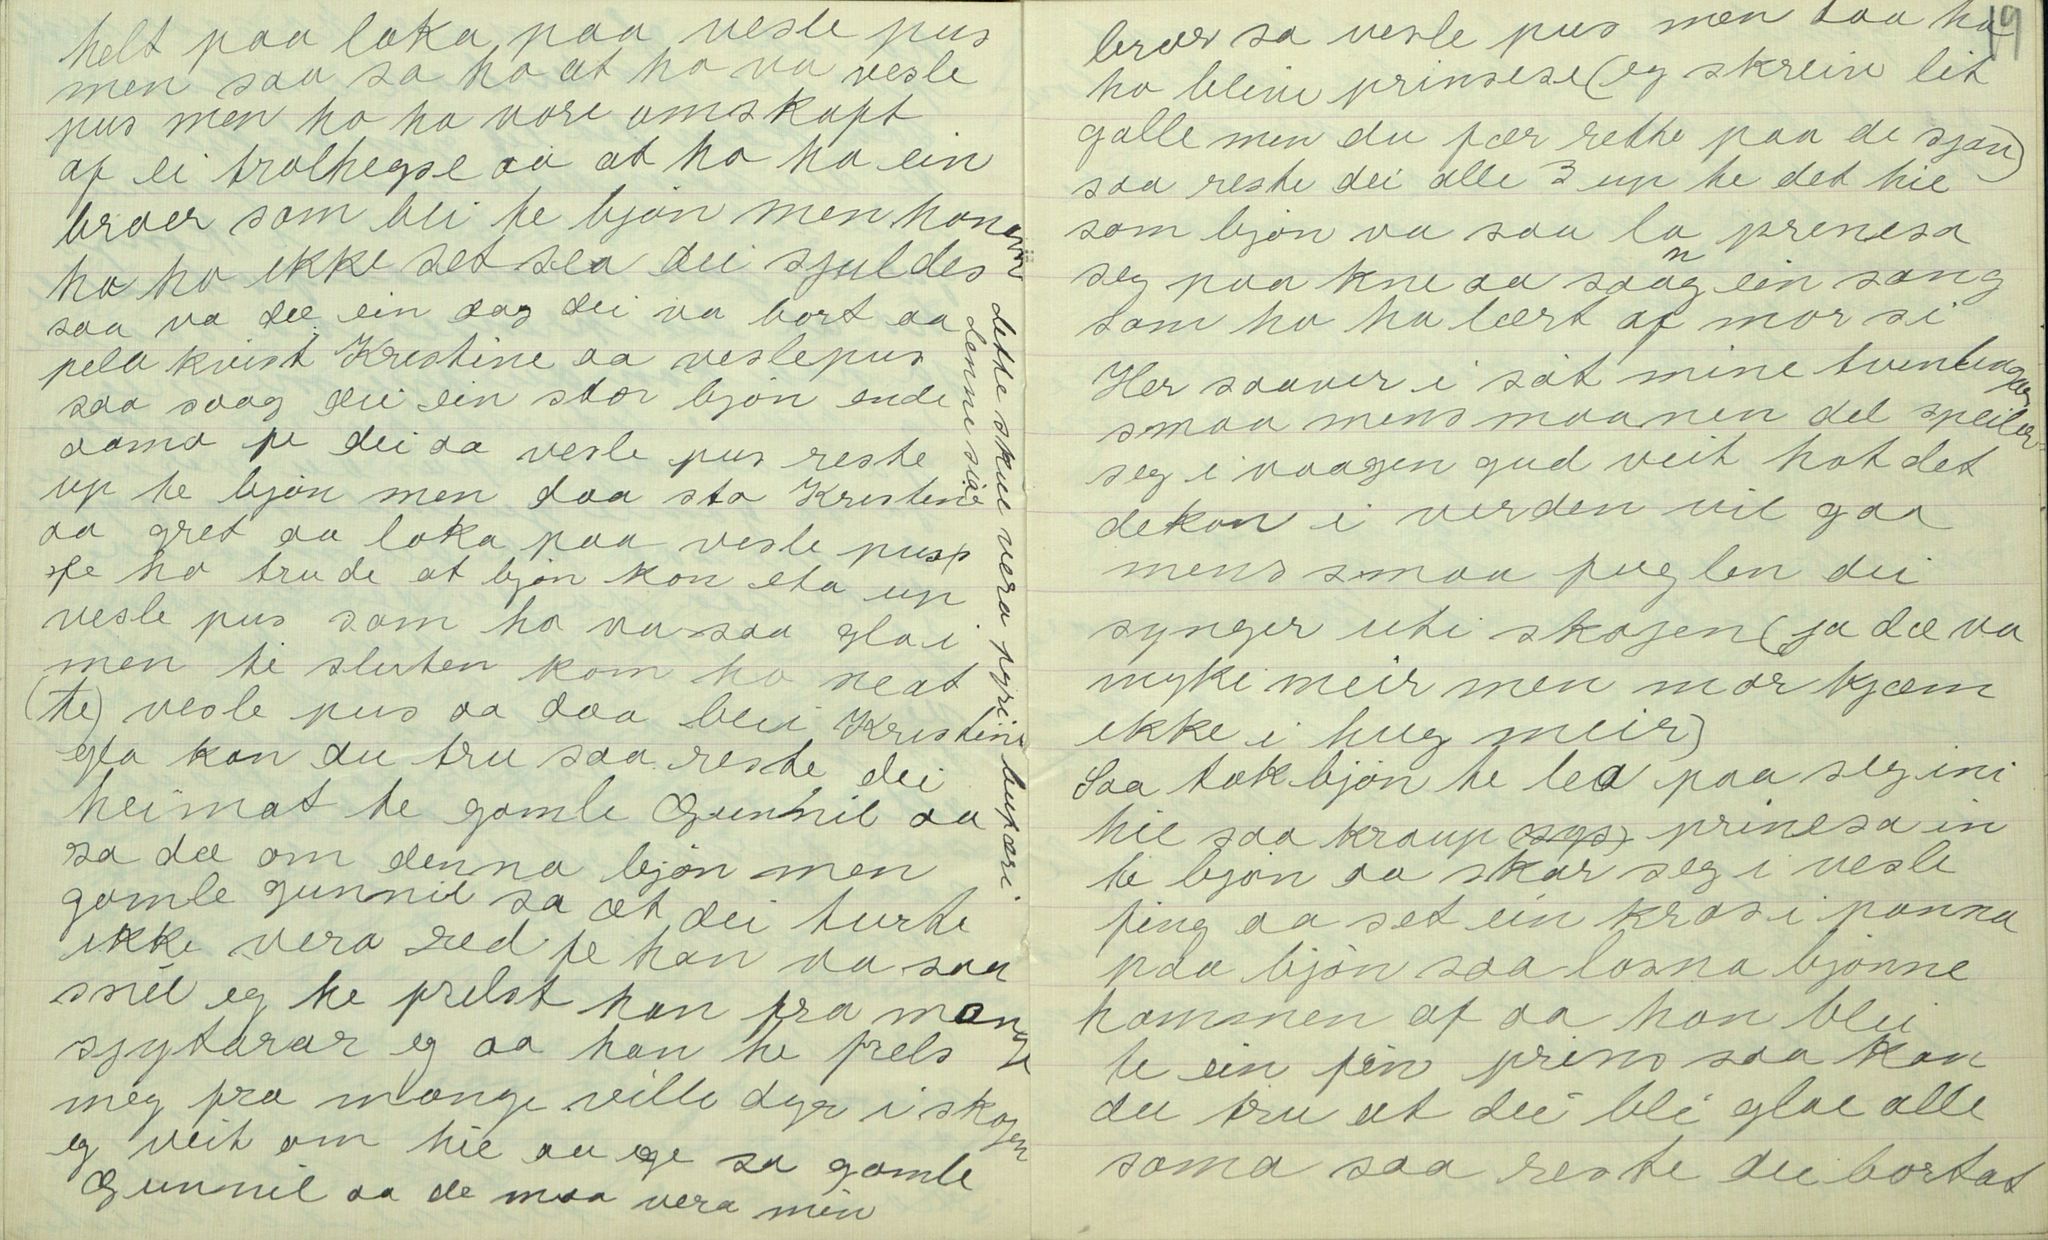 helt paa loka paa vesle pus
men saa sa ho at ho va vesle
pus men ho ha vore omskapt
af ei trolhegse aa at ho ha ein
broer som blei te bjøn men honom
ha ho ikke set sea dei sjuldes
saa va dæ ein dag dei va bort aa
pela kvist Kristine aa veslepus
saa saag dei ein stor bjøn ende
aamo fe dei aa vesle pus reste
up te bjøn men daa sto Kristine
aa gret aa loka paa vesle pus
fe ho trude at bjøn kon eta up
vesle pus som ho va saa glai
men te sluten kom ho neat
(te) vesle pus aa daa blei Kristine
gla kan du tru saa reste dei
heimat te gamle Gunnil aa
sa dæ om denna bjøn men
gamle gunnil sa æt dei turte
ikke vera red fe han va saa
snil eg he frelst han fra mange
sjytarar eg aa han he frels
meg fra mange ville dyr i skogen
eg veit om hie aa sa gamle
Gunnil aa de maa vera min
dette skue vera fyri
denne sia
19
broer sa vesle pus men daa ha
ho blive prinsese (eg skreiv lit
galle men du fær rette paa de sjøv)
saa reste dei alle 3 up te det hie
som bjøn va saa la prinesa
seg paa kne aa saang ein sang
som ho ha lært af mor si
Her saaver i søt mine tvenlingar
smaa mens maanen del speiler
seg i vaagen gud veit hot det
dekan i verden vil gaa
mens smaa fuglen dei
synger uti skogen (ja dæ va
myki meir men mor kjæm
ikke i hug meir)
Saa tok bjøn te lea paa seg ini
hie saa kraup prinesa in
te bjøn aa skar seg i vesle
fing aa set ein kros i panna
paa bjøn saa losna bjønne
hammen af aa han blei
te ein fin prins saa kan
du tru at dei bli glae alle
soma saa reste dei bortat